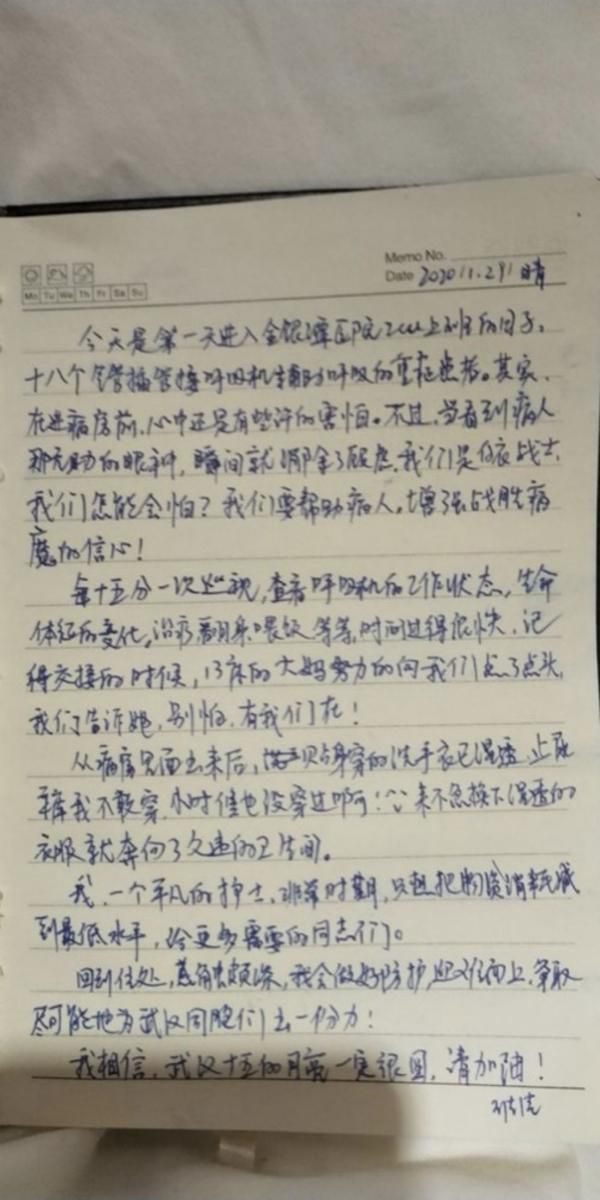 Memo No.
Mo Tu We Th Fr Sa Su
Date 2020/1.29/ 晴
今天是第一天进入金银潭医院icu上班的日子,
十八个管插管接呼吸机辅助呼吸的重症患者。其实,
在进病房前,心中还是有些许的害怕。不过,当看到病人
那无助的眼神,瞬间就消除了顾虑,我们是白衣战士,
我们怎能会怕?我们要帮助病人,增强战胜病
魔的信心!
每十五分一次巡视,查看呼吸机的工作状态,生命
体征的变化,治疗翻身喂饭等等,时间过得很快,记
得交接的时候,13床的大妈努力的向我们点了点头,
我们告诉她,别怕,有我们在!
从病房里面出来后,贴身穿的洗手衣已湿透,止尿
裤我不敢穿,小时候也没穿过啊!来不急换下湿透的
衣服就奔向了久违的卫生间。
我,一个平凡的护士,非常时期,只想把物资消耗减
到最低水平,给更多需要的同志们。
回到住处,我会做好防护,迎难而上,争取
尽可能地为武汉同胞们出一份力!
我相信,武汉十五的月亮一定很圆,请加油!